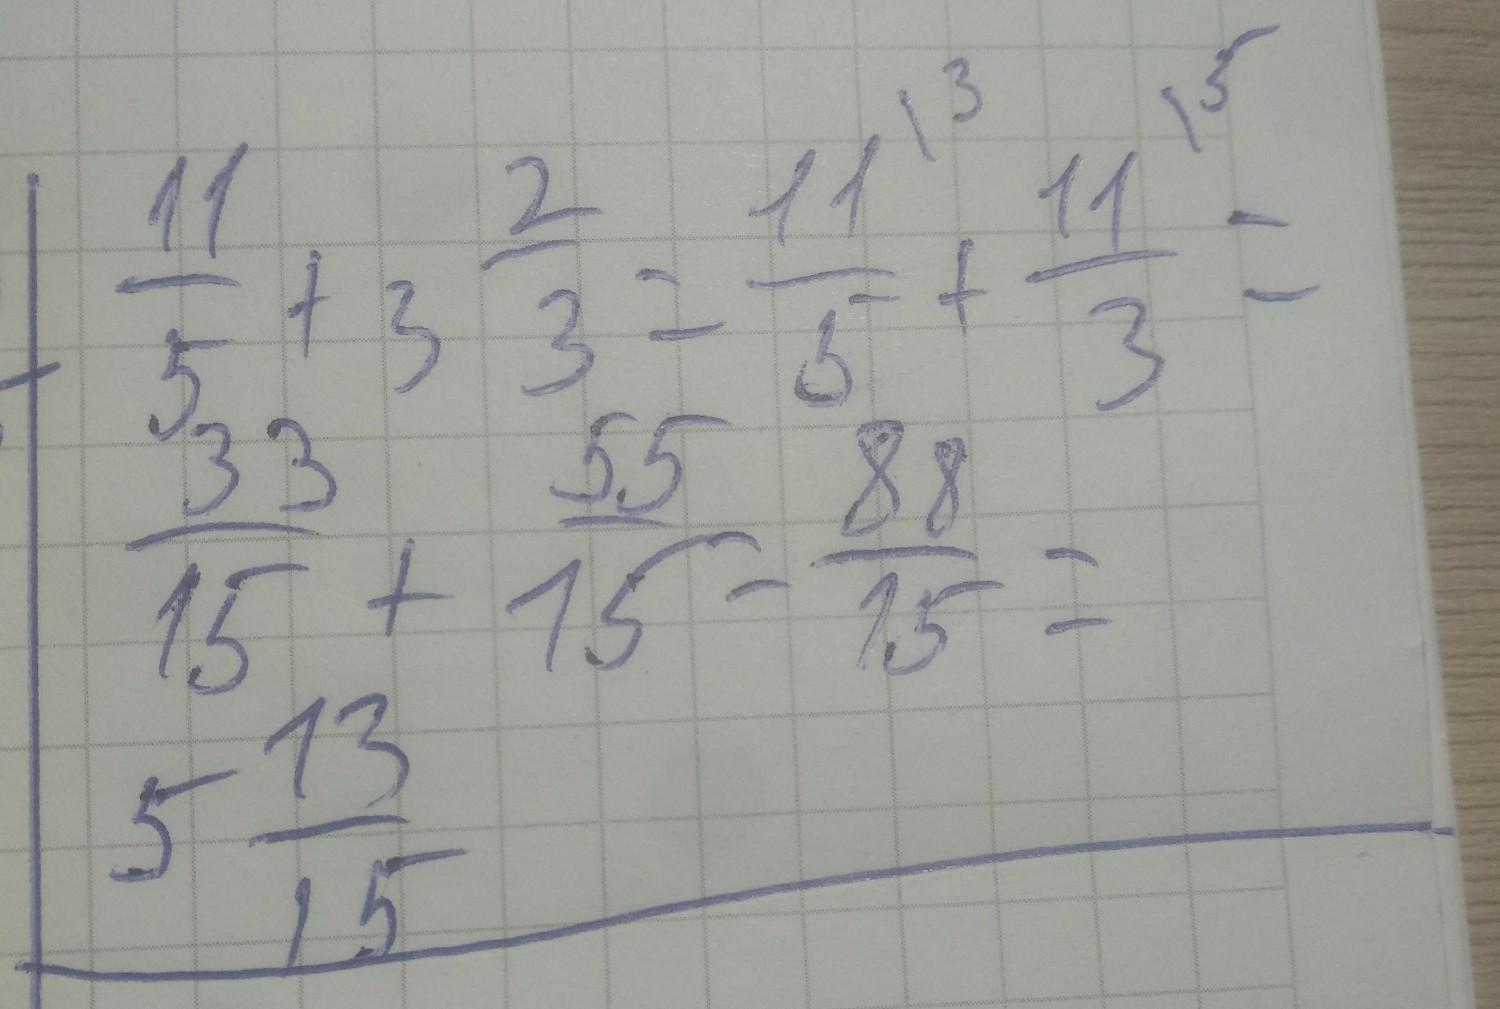 11/5 + 3 2/3 = 11/5 \3 + 11/3 \5 =
33/15 + 55/15 - 88/15 =
5 13/15